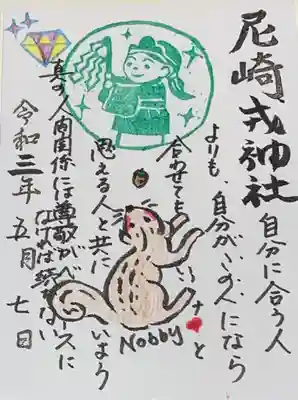 尼崎戎神社
自分に合う人
よりも、自分がこの人になら
合わせてもいいナ❤と
思える人と共にいよう
真の人間関係には尊敬がベースに
なければ続かない
令和三年 五月 七日
Nobby